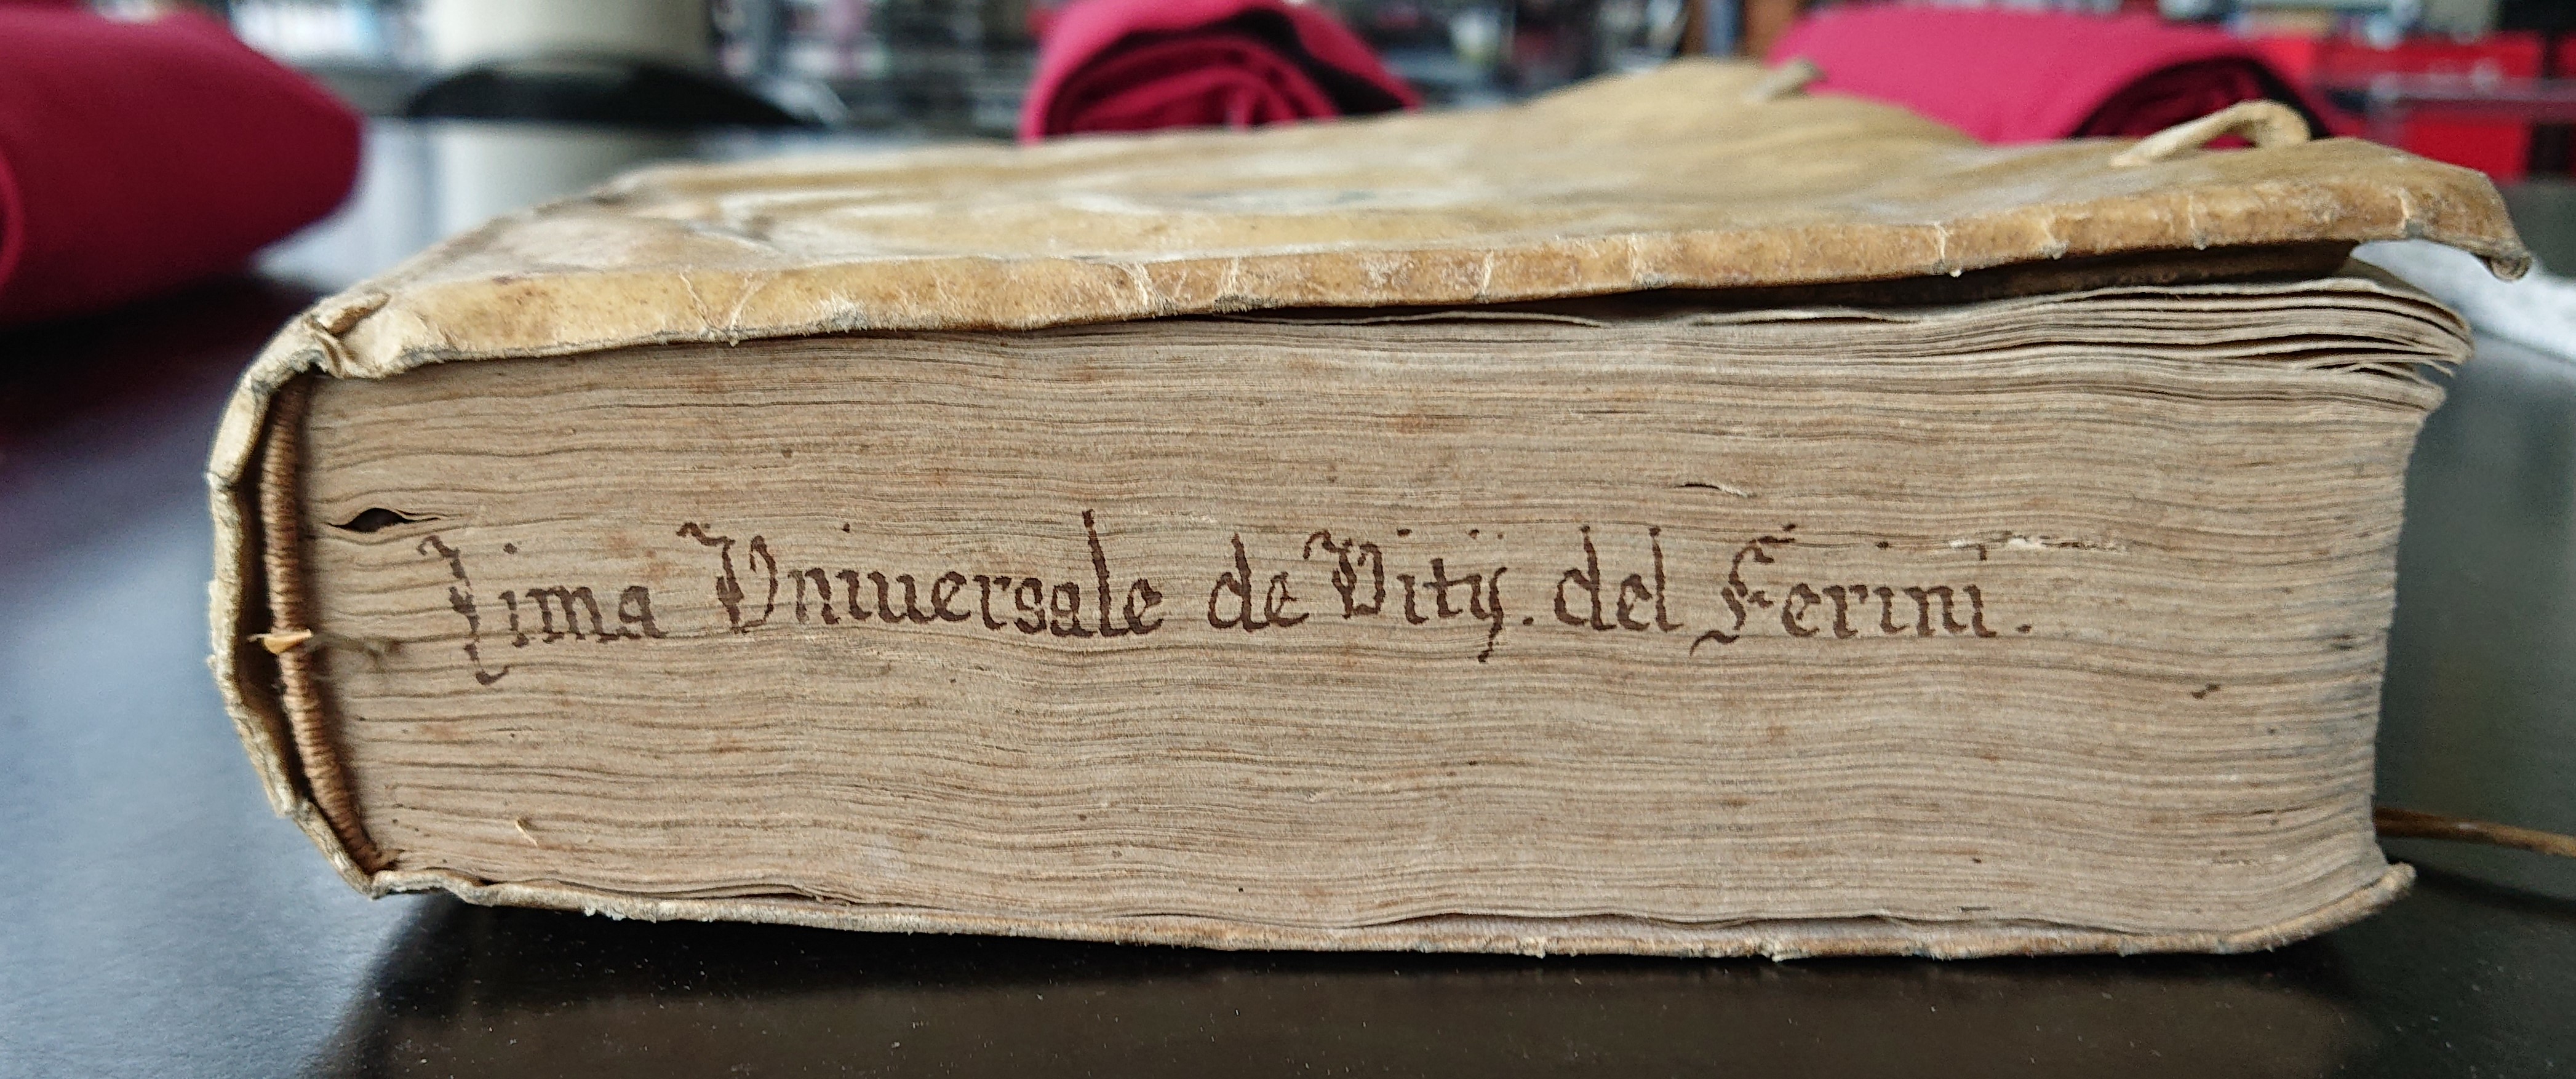 Lima Vniuersale de Vitij. del Ferini.